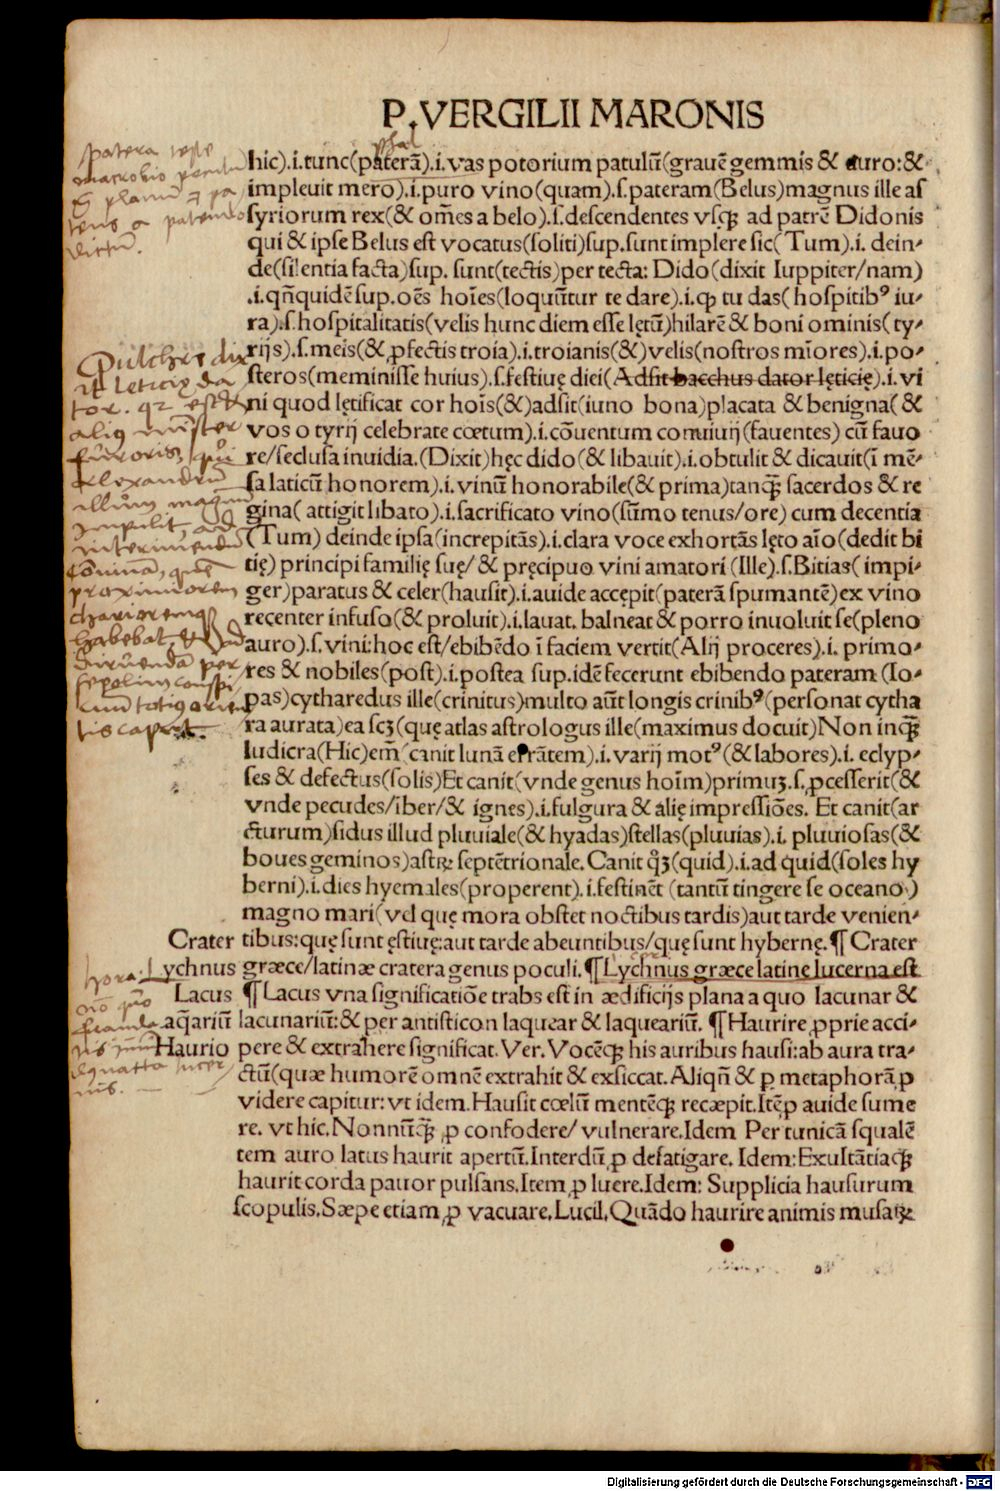 P. VERGILII MARONIS
hic).i.tunc(paterā).i.vas potorium patulū(grauē gemmis & auro:&
impleuit mero).i.puro vino(quam).s.pateram(Belus)magnus ille as
syriorum rex(& om̄es a belo).s.descendentes vsq̨ ad patrē Didonis
qui & ipse Belus est vocatus(soliti)sup.sunt implere sic(Tum).i. dein-
de(silentia facta)sup. sunt(tectis)per tecta: Dido(dixit Iuppiter/nam)
.i.qn̄quidē sup.oēs hoīes(loquūtur te dare).i.q̨ tu das(hospitibꝰ iu-
ra).s.hospitalitatis(velis hunc diem esse lętū)hilarē & boni ominis(ty-
rijs).s.meis(&,ꝓfectis troia).i.troianis(&)velis(nostros mīores).i.po-
steros(meminisse huius).s.festiuę diei(Adsit bacchus dator lęticię).i.vi
ni quod lętificat cor hoīs(&)adsit(iuno bona)placata & benigna(&
vos o tyrij celebrate cœtum).i.cōuentum conuiuij(fauentes) cū fauo
re/seclusa inuidia.(Dixit)hęc dido(& libauit).i.obtulit & dicauit(ī mē-
sa laticū honorem).i.vinū honorabile(& prima)tanq̨̄ sacerdos & re
gina( attigit libato).i.sacrificato vino(sūmo tenus/ore) cum decentia
(Tum) deinde ipsa(increpitās).i.clara voce exhortās lęto aīo(dedit bi
tię) principi familię suę/ & pręcipuo vini amatori (Ille).s.Bitias( impi-
ger)paratus & celer(hausit).i.auide accępit(paterā spumantē)ex vino
recenter infuso(& proluit).i.lauat. balneat & porro inuoluit se(pleno
auro).s.vini:hoc est/ebibēdo ī faciem vertit(Alij proceres).i. primo-
res & nobiles(post).i.postea sup.idē fecerunt ebibendo pateram(Io-
pas)cytharedus ille(crinitus)multo aūt longis crinibꝰ(personat cytha
ra aurata)ea scꝫ(quę atlas astrologus ille(maximus docuit)Non inq̨̄
ludicra(Hic)em̄(canit lunā errātem).i.varij motꝰ(& labores).i. eclyp-
ses & defectus(solis)Et canit(vnde genus hoīm)primuꝫ.s.ꝓcesserit(&
vnde pecudes/iber/& ignes).i.fulgura & alię impressiōes. Et canit(ar
cturum)sidus illud pluuiale(& hyadas)stellas(pluuias).i. pluuiosas(&
boues geminos)astꝝ septētrionale. Canit qꝫ(quid).i.ad quid(soles hy
berni).i.dies hyemales(properent).i.festinēt (tantū tingere se oceano)
magno mari(vel quę mora obstet noctibus tardis)aut tarde venien-
Crater tibus:quę sunt ęstiuę:aut tarde abeuntibus/quę sunt hybernę.¶ Crater
Lychnus græce/latinæ cratera genus poculi.¶Lychnus græce latine lucerna est
Lacus ¶ Lacus vna significatiōe trabs est in ædificijs plana a quo lacunar &
aq̄ariū lacunariū:& per antisticon laquear & laqueariū. ¶ Haurire ꝓprie acci-
Haurio pere & extrahere significat. Ver. Vocēq̨ his auribus hausi:ab aura tra-
ctū(quæ humorē omnē extrahit & exsiccat. Aliqn̄ & ꝑ metaphorā ꝓ
videre capitur: vt idem.Hausit cœlū mentēq̨ recæpit.Itē ꝓ auide sume
re. vt hic.Nonnūq̨̄ ꝓ confodere/ vulnerare.Idem Per tunicā squalē
tem auro latus haurit apertū.Interdū ꝓ defatigare. Idem:Exultātiaq̨
haurit corda pauor pulsans.Item ꝓ luere.Idem: Supplicia hausurum
scopulis.Sæpe etiam ꝓ vacuare.Lucil.Quādo haurire animis musaꝝ
patera teste
macrobio
planum
tens a patendo
dictū.
Pulchre dix
it leticię da
tor. qz est &
aliꝰ minister
furoris, qui
Alexandrum
illum magnum
impulit, ad
interimendū
proximiorem
charioremqz
habebat, & ad
diruendā per
sepolim conspi
cuum totiꝰ orien
tis caput.
hora.
Digitalisierung gefördert durch die Deutsche Forschungsgemeinschaft - DFG